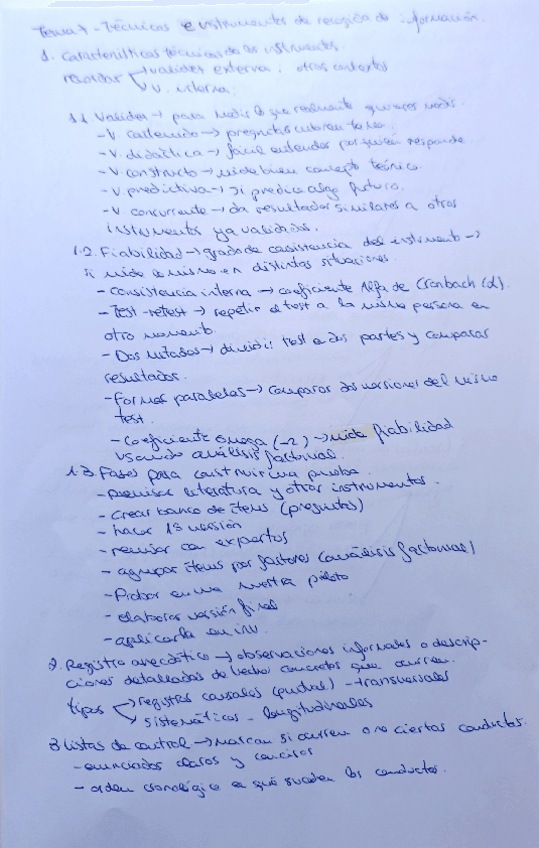 Tema 7 - Técnicas e instrumentos de recogida de información.
1. Características técnicas de los instrumentos.
recordar validez externa: otros contextos
v. interna:
1.1 Validez → para medir lo que realmente queremos medir.
- V. contenido → preguntas cubren tema.
- V. didáctica → fácil entender por quien responde
- V. constructo → mide bien concepto teórico.
- V. predictiva → si predice algo futuro.
- V. concurrente → da resultados similares a otros
instrumentos ya validados.
1.2. Fiabilidad → grado de consistencia del instrumento →
si mide lo mismo en distintas situaciones
- Consistencia interna → coeficiente Alfa de Cronbach (α).
- Test-retest → repetir el test a la misma persona en
otro momento.
- Dos mitades → dividir test en dos partes y comparar
resultados.
- Formas paralelas → comparar dos versiones del mismo
test.
- Coeficiente omega (-2) → mide fiabilidad
usando análisis factorial.
1.3. Fases para construir una prueba.
- revisar literatura y otros instrumentos.
- crear banco de ítems (preguntas)
- hacer 1ª versión
- revisar con expertos
- agrupar ítems por factores (análisis factorial)
- Probar en una muestra piloto
- elaborar versión final
- aplicarla en inv.
2. Registro anecdótico → observaciones informales o descrip-
ciones detalladas de hechos concretos que ocurren.
tipos registros casuales - transversales
sistemáticos - longitudinales
3 listas de control → marcan si ocurren o no ciertas conductas.
- enunciados claros y concisos
- orden cronológico en que suceden las conductas.